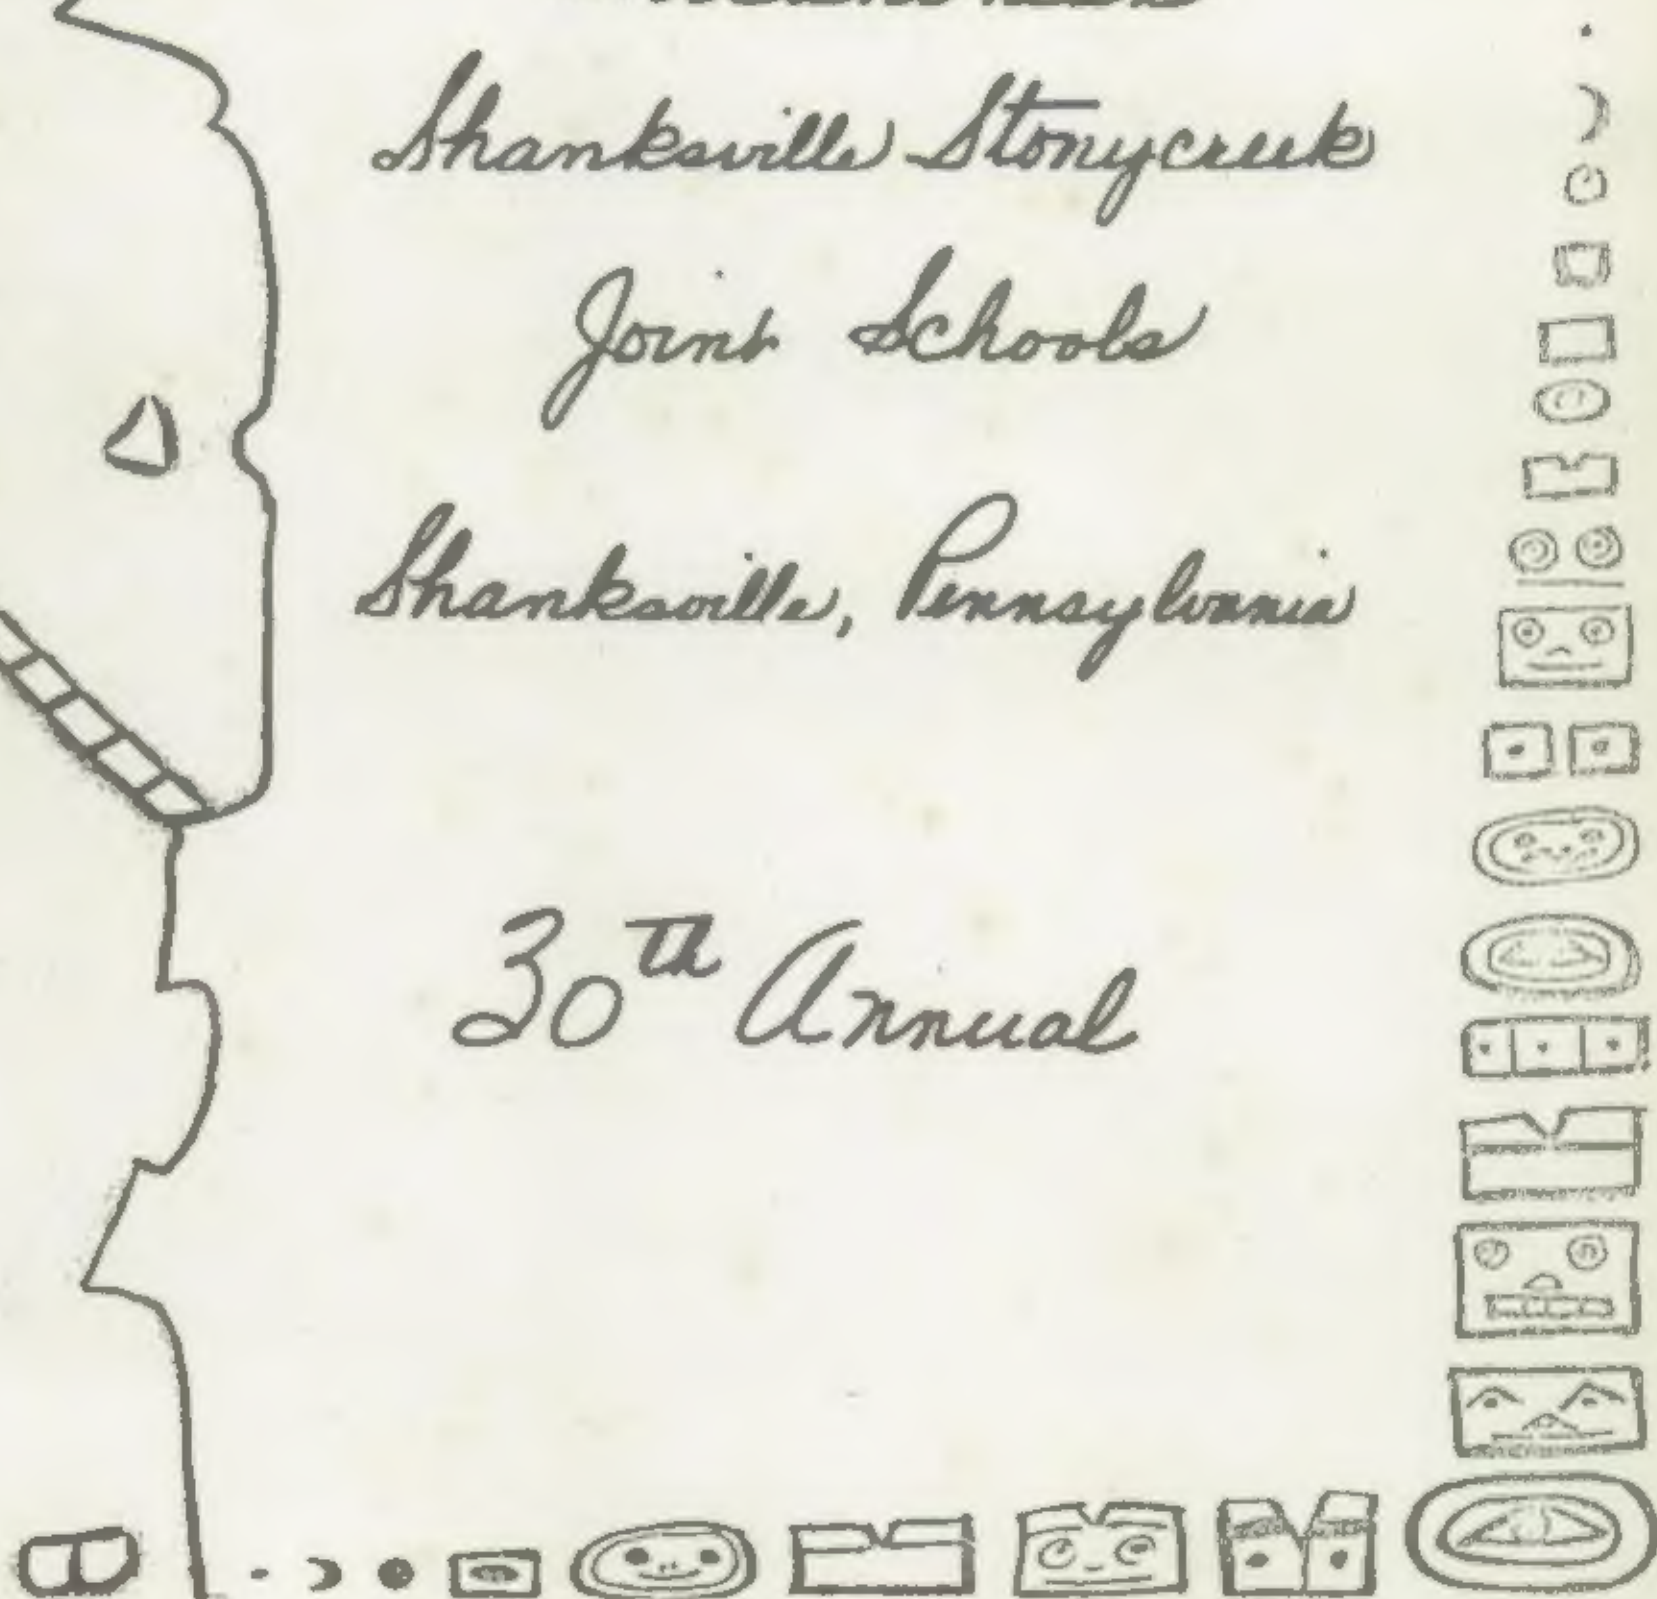 Shanksville Stonycreek
Joint Schools
Shanksville, Pennsylvania
30th Annual